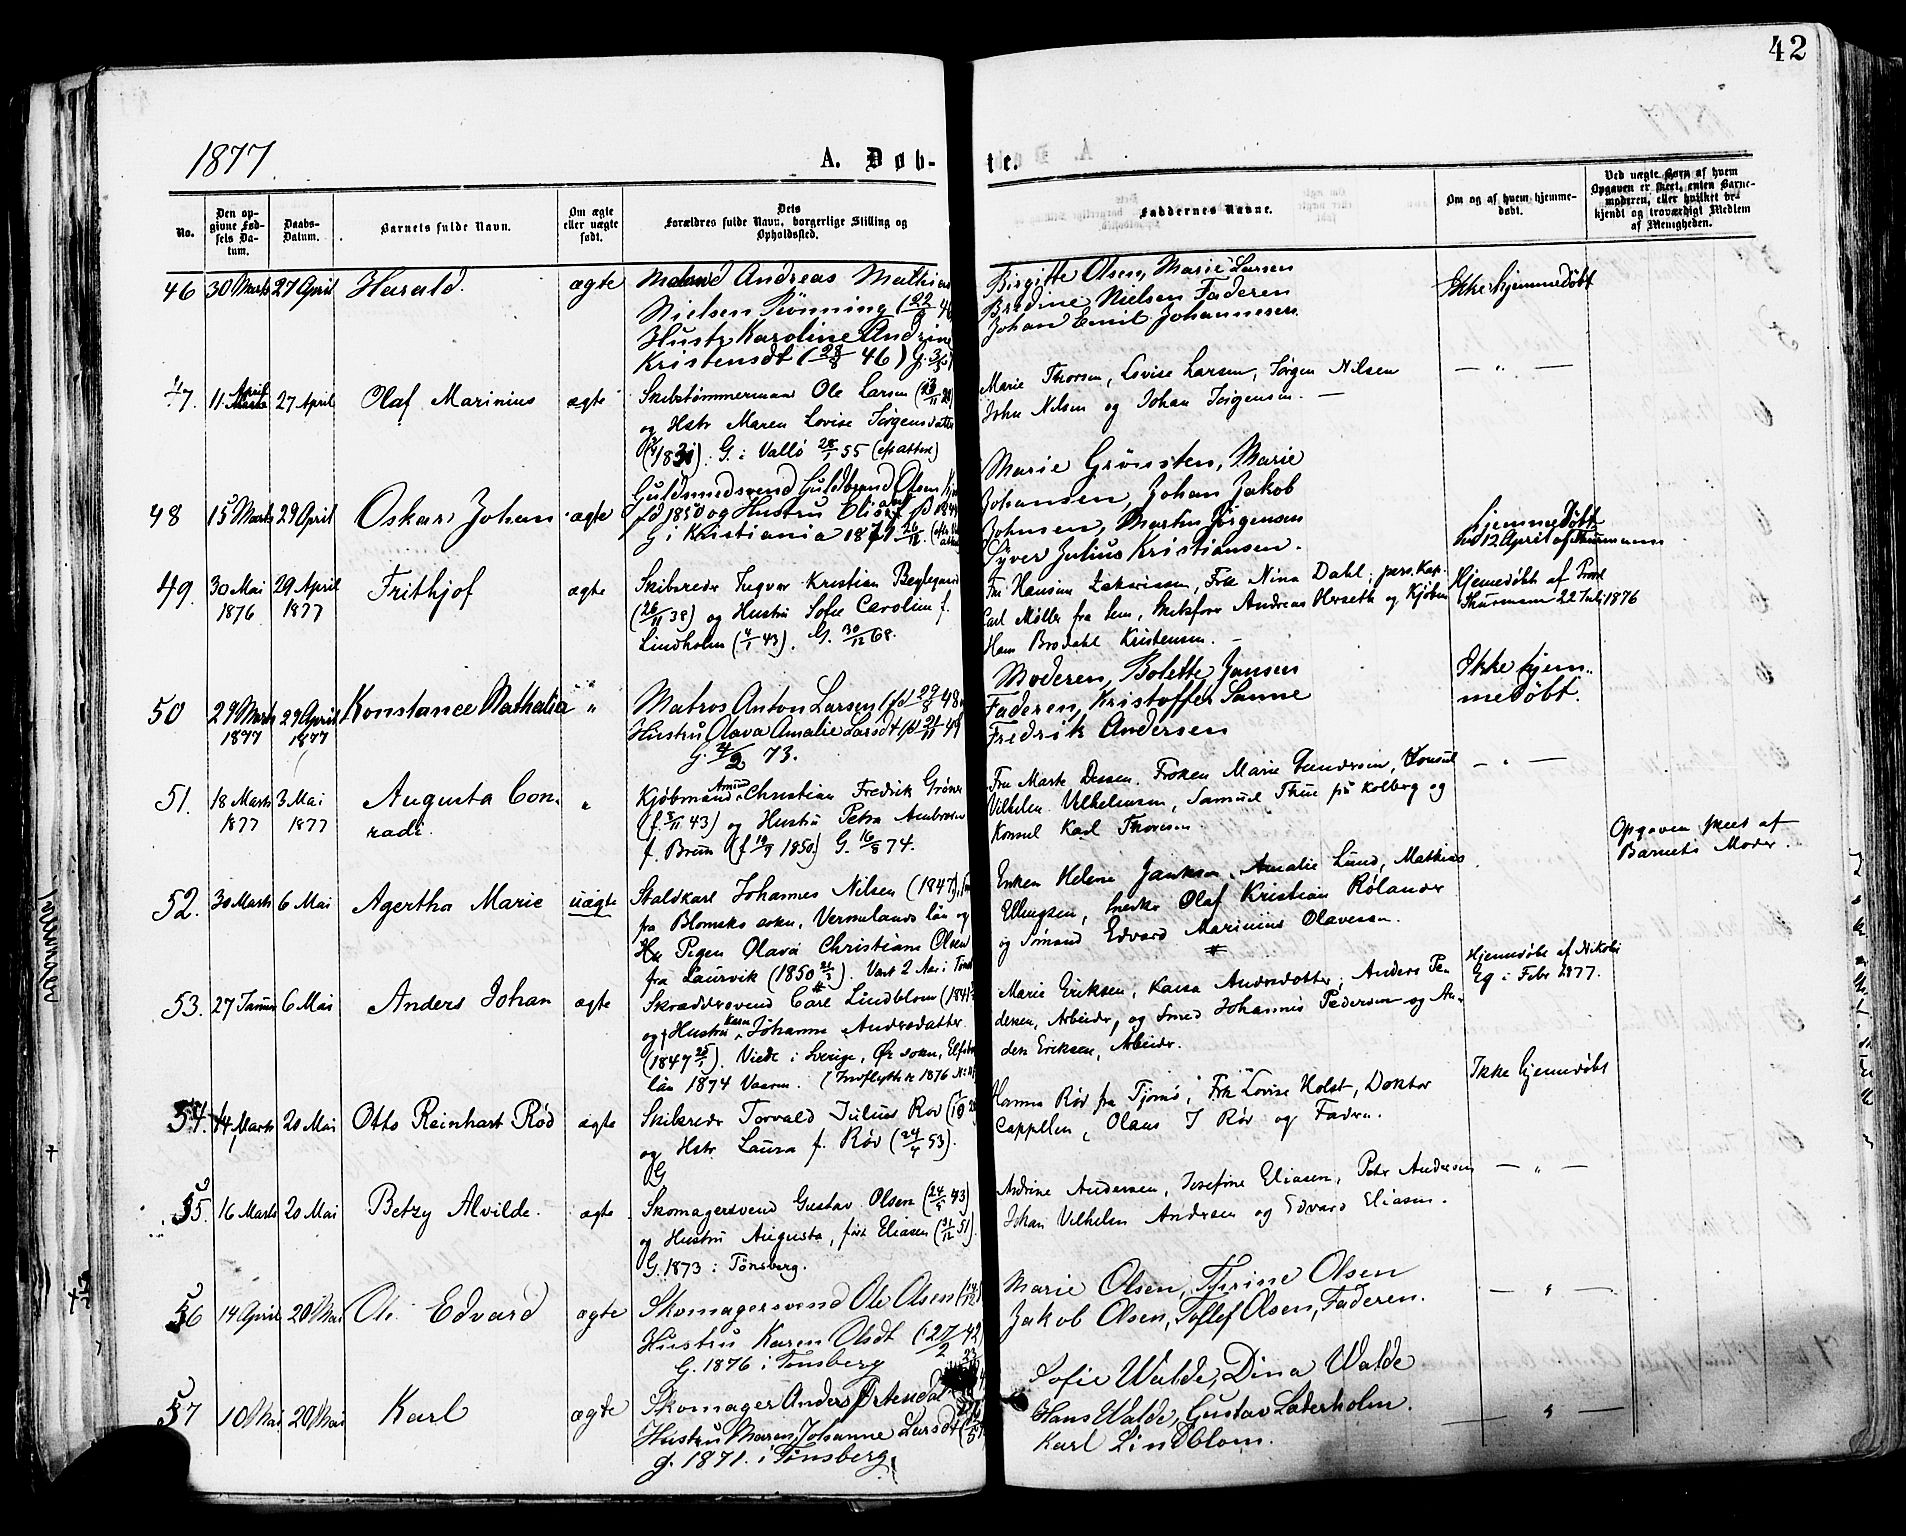 42
1877.
A. Døb-
te.
No.
Den op-
givne Fød-
sels Da-
tum.
Daabs-
Datum.
Barnets fulde Navn.
Om ægte
eller uægte
født.
Dets
Forældres fulde Navn, borgerlige Stilling og
Opholdssted.
Faddernes Navne.
Om og af hvem hjemme-
døbt.
Ved uægte Børn af hvem
Opgaven er skeet, enten Barne-
moderen, eller hvilket be-
kjendt og troværdigt Medlem
af Menigheden.
46 30 Marts 27 April Harald. ægte Andreas Mathias
Nielsen Rønning (22/
Hustr Karoline Andrine
Kristensdt (28/8 46)
Birgitte Olsen, Marie Larsen
Bredine Nielsen Faderen
Johan Emil Johannesen
Ikke hjemmedøbt
47. 11 April 27 April Olaf Marinius ægte Skibstømmermand Ole Larsen
og Hstr Maren Lovise Jørgensdatter
G. i Vallö 28/1 55 (
Marie Thorsen, Lovise Larsen, Jørgen Nilsen
John Nilsen og Johan Jørgensen. —
— „ —
48 15 Marts 29 April Oskar Johan ægte Guldsmedsvend Guldbrand Olsen
fd 1850 og Hustru
G i Kristiania 26/12
Marie Grönsten, Marie
Johansen, Johan Jakob
Johnsen, Martin Jørgensen
Syver Julius Kristiansen.
hjemmedøbt
12 April af Thurmann
49. 30 Mai
1876
29 April
1877
Frithjof ægte Skibsreder Ingvar Kristian Bøglegaard
(26/11 38) og Hustru Sofie Caroline f.
Lindholm (4/1 43). G. 30/12 68.
Fru Hansine Zakarissen, Frk Nina Dahl, pers. Kap.
Carl Møller fra Sem, Skibsfører Andreas Herseth og Kjøbm
Hans Brodahl Kristensen. —
Hjemmedøbt af Provst
Thurmann 22 Juli 1876
50 29 Marts
1877
29 April
1877
Konstance Nathalia „ Matros Anton Larsen fd 29/8 48
Hustru Olava Amalie Larsdt fd 21/11 49
G. 4/2 73.
Moderen, Bolette Jansen
Faderen, Kristoffer Sanne
Fredrik Andersen
Ikke hjem-
medøbt.
51. 18 Marts
1877
3 Mai
1877
Augusta Con-
radi.
„ Kjøbmand Christian Fredrik Grøner
(f. 8/11 43) og Hustru Petra Ambrosia
f. Bruun (f 10/9 1850) G. 16/8 74.
Fru Marte Dessen. Frøken Marie Gundersen, Konsul
Vilhelm Vilhelmsen, Samuel Thue på Kolberg og
Konsul Karl Thoresen.
— „ —
52. 30 Marts 6 Mai Agertha Marie uægte Staldkarl Johannes Nilsen (1847),
fra Blomsks sokn, Vermlands län og
Pigen Olava Christiane Olsen
fra Laurvik (1850 21/3). Vært 2 Aar i
Enken Helene Janksen, Amalie Lund, Mathias
Ellingsen, Snedker Olaf Kristian Rølander
og Sømand Edvard Marinius Olavesen.
Opgaven skeet af
Barnets Moder.
53. 27 Januar 6 Mai Anders Johan ægte Skræddersvend Carl Lindblom (1841
og Hustru Karin Johanna Andersdatter
(1847 25/1). Viede i Sverige, Ør sokn, Elfsborgs
län 1874 Vaaren. (Indflyttede 1876
Marie Eriksen, Kaisa Andersdotter, Anders Pe-
dersen, Arbeider, og Smed Johannes Pedersen og An-
ders Eriksen, Arbeider.
Hjemmedøbt af Nikolai
Eg i Febr 1877.
54. 14 Marts 20 Mai Otto Reinhart Rød ægte Skibsreder Torvald Julius Rød
og Hstr Laura f. Rød (24/4 53).
G
Hanna Rød fra Tjømø, Frk Lovise Holst, Doktor
Cappelen, Olaus J Rød og Faderen.
Ikke hjemmedøbt
55. 16 Marts 20 Mai Betzy Alvilde. ægte. Skomagersvend Gustav Olsen (24/5 43)
og Hustru Augusta, født Eliasen (31/12 51).
G. 1873 i Tønsberg.
Andrine Andersen, Josefine Eliasen, Peter Andersen
Johan Vilhelm Andersen og Edvard Eliasen.
— „ —
56 14 April 20 Mai Ole Edvard ægte Skomagersvend Ole Olsen
Hustru Karen Olsdt (27/2 42)
G. 1876 i Tønsberg
Marie Olsen, Thrine Olsen
Jakob Olsen, Tollef Olsen, Faderen.
— „ —
57 10 Mai 20 Mai Karl ægte Skomager Anders Ørtendal
Hustru Maren Johanne Larsdt
g. 1871. i Tønsberg.
Sofie Walde, Dina Walde
Hans Walde, Gustav Laderholm.
Karl Lindblom.
— „ —